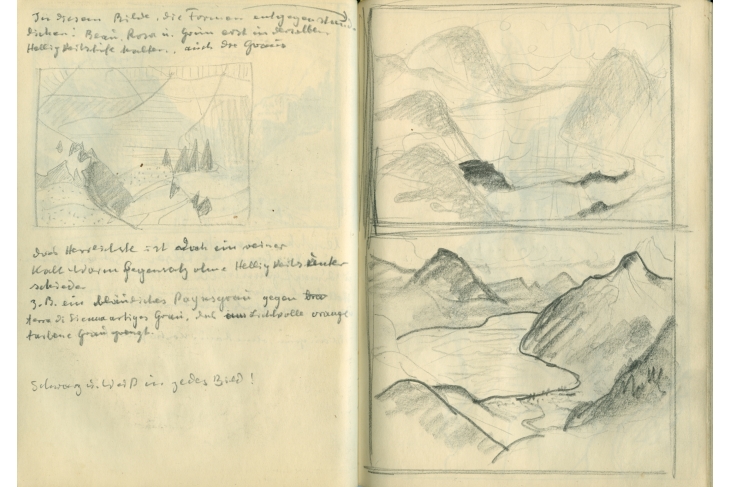 In diesem Bilde, die Formen entgegen
Blau, Rosa u. Grün erst in derselben
Helligkeitsstufe halten, auch das Grau
das Herrlichste ist doch ein reiner
Kalt-Warm Gegensatz ohne Helligkeitsunter
schiede
z.B. ein bläuliches Paynsgrau gegen
terra di Sienaartiges Grau, das lichtvolle orange
farbene Grau
Schwarz u. Weiß in jedes Bild!